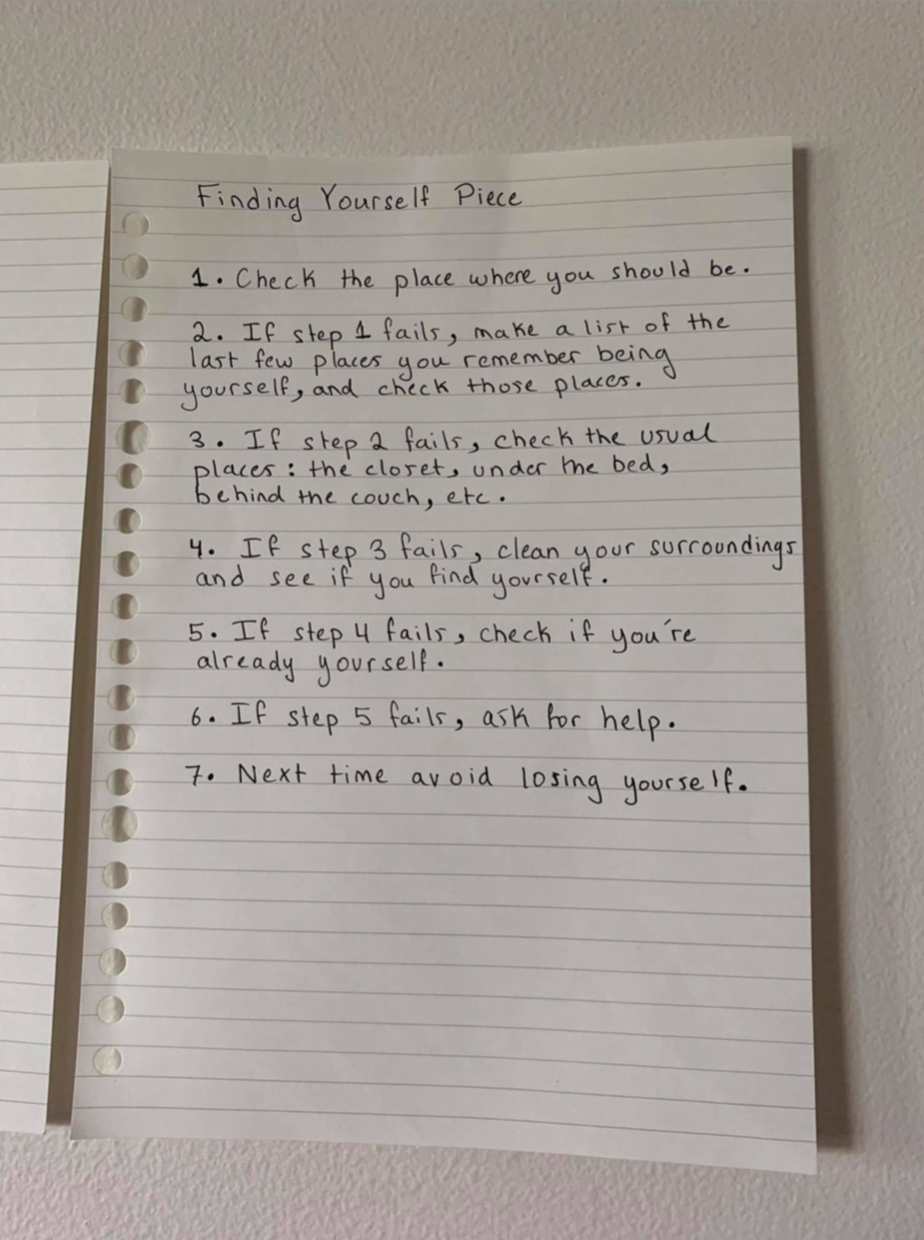 Finding Yourself Piece
1. Check the place where you should be.
2. If step 1 fails, make a list of the
last few places you remember being
yourself, and check those places.
3. If step 2 fails, check the usual
places: the closet, under the bed,
behind the couch, etc.
4. If step 3 fails, clean your surroundings
and see if you find yourself.
5. If step 4 fails, check if you're
already yourself.
6. If step 5 fails, ask for help.
7. Next time avoid losing yourself.